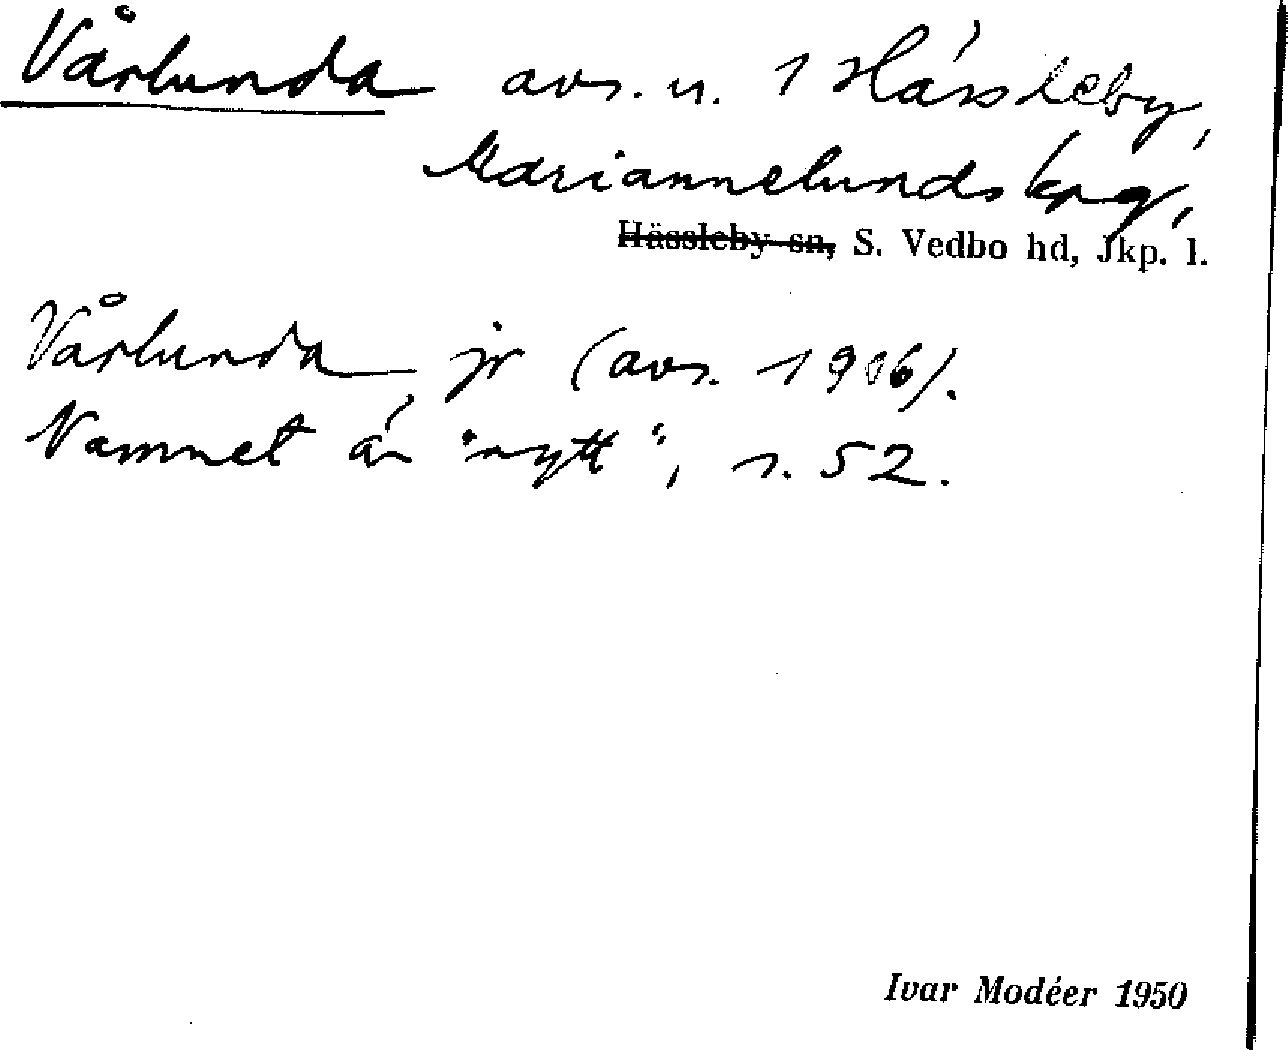 Vårlunda avs. u. 1 Hässleby,
Mariannelunds kpg,
Hässleby sn, S. Vedbo hd, Jkp. l.
Vårlunda, jr (avs. 1906).
Namnet är "nytt", s. 52.
Ivar Modéer 1950